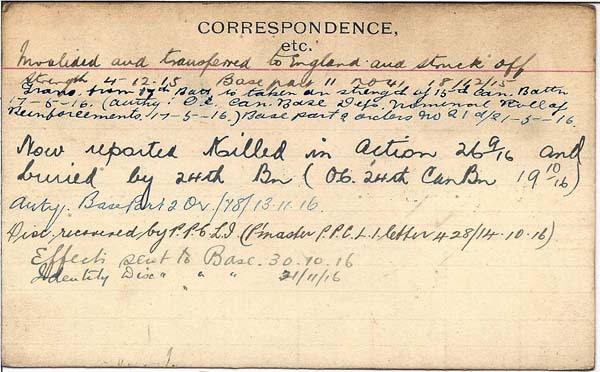 CORRESPONDENCE,
etc.
Invalided and transferred to England and struck off
strength 4-12-15 Base part II No 41 18/12/15
Trans. from 17th Batt. to taken on strength of 15th Can. Battn
17-5-16. (Authy: O.C. Can. Base Dep. Nominal Roll of
Reinforcements 17-5-16.) Base part 2 orders No 21 d/21-5-16.
Now reported Killed in Action 26/9/16 and
buried by 24th Bn (O.C. 24th Can Bn 19/10/16)
Auty. Base Part 2 Or /78/ 13.11.16.
Disc. recovered by P.P.C.L.I. (P'master P.P.C.L.I. letter 428/14.10.16)
Effects sent to Base. 30.10.16
Identity Disc " " " 21/11/16